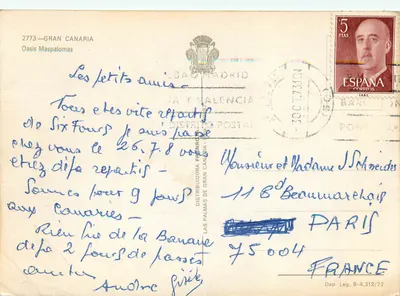 2773.—GRAN CANARIA
Oasis Maspalomas
5
PTAS
ESPAÑA
CORREOS
MADRID
VALENCIA
POSTAL
Les petits amis -
Tous êtes vite repartis
de Six Fours je suis passé
chez vous le 26.7.8 vous
étiez déjà repartis -
Sommes pour 9 jours
aux Canaries -
Rien de la Banane
déjà 2 jours de passés
amitiés
André
Monsieur et Madame J Schneider
11 Bd Beaumarchais
PARIS
75004
FRANCE
LAS PALMAS DE GRAN CANARIA
Dep. Leg. B-4.312/72